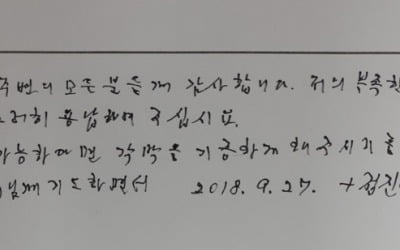 주변의 모든 분들께 감사합니다. 저의 부족한
그러히 용납하여 주십시요.
가능하다면 각막을 기증하게 해주시기를
님께 기도하면서 2018. 9. 27. +정진